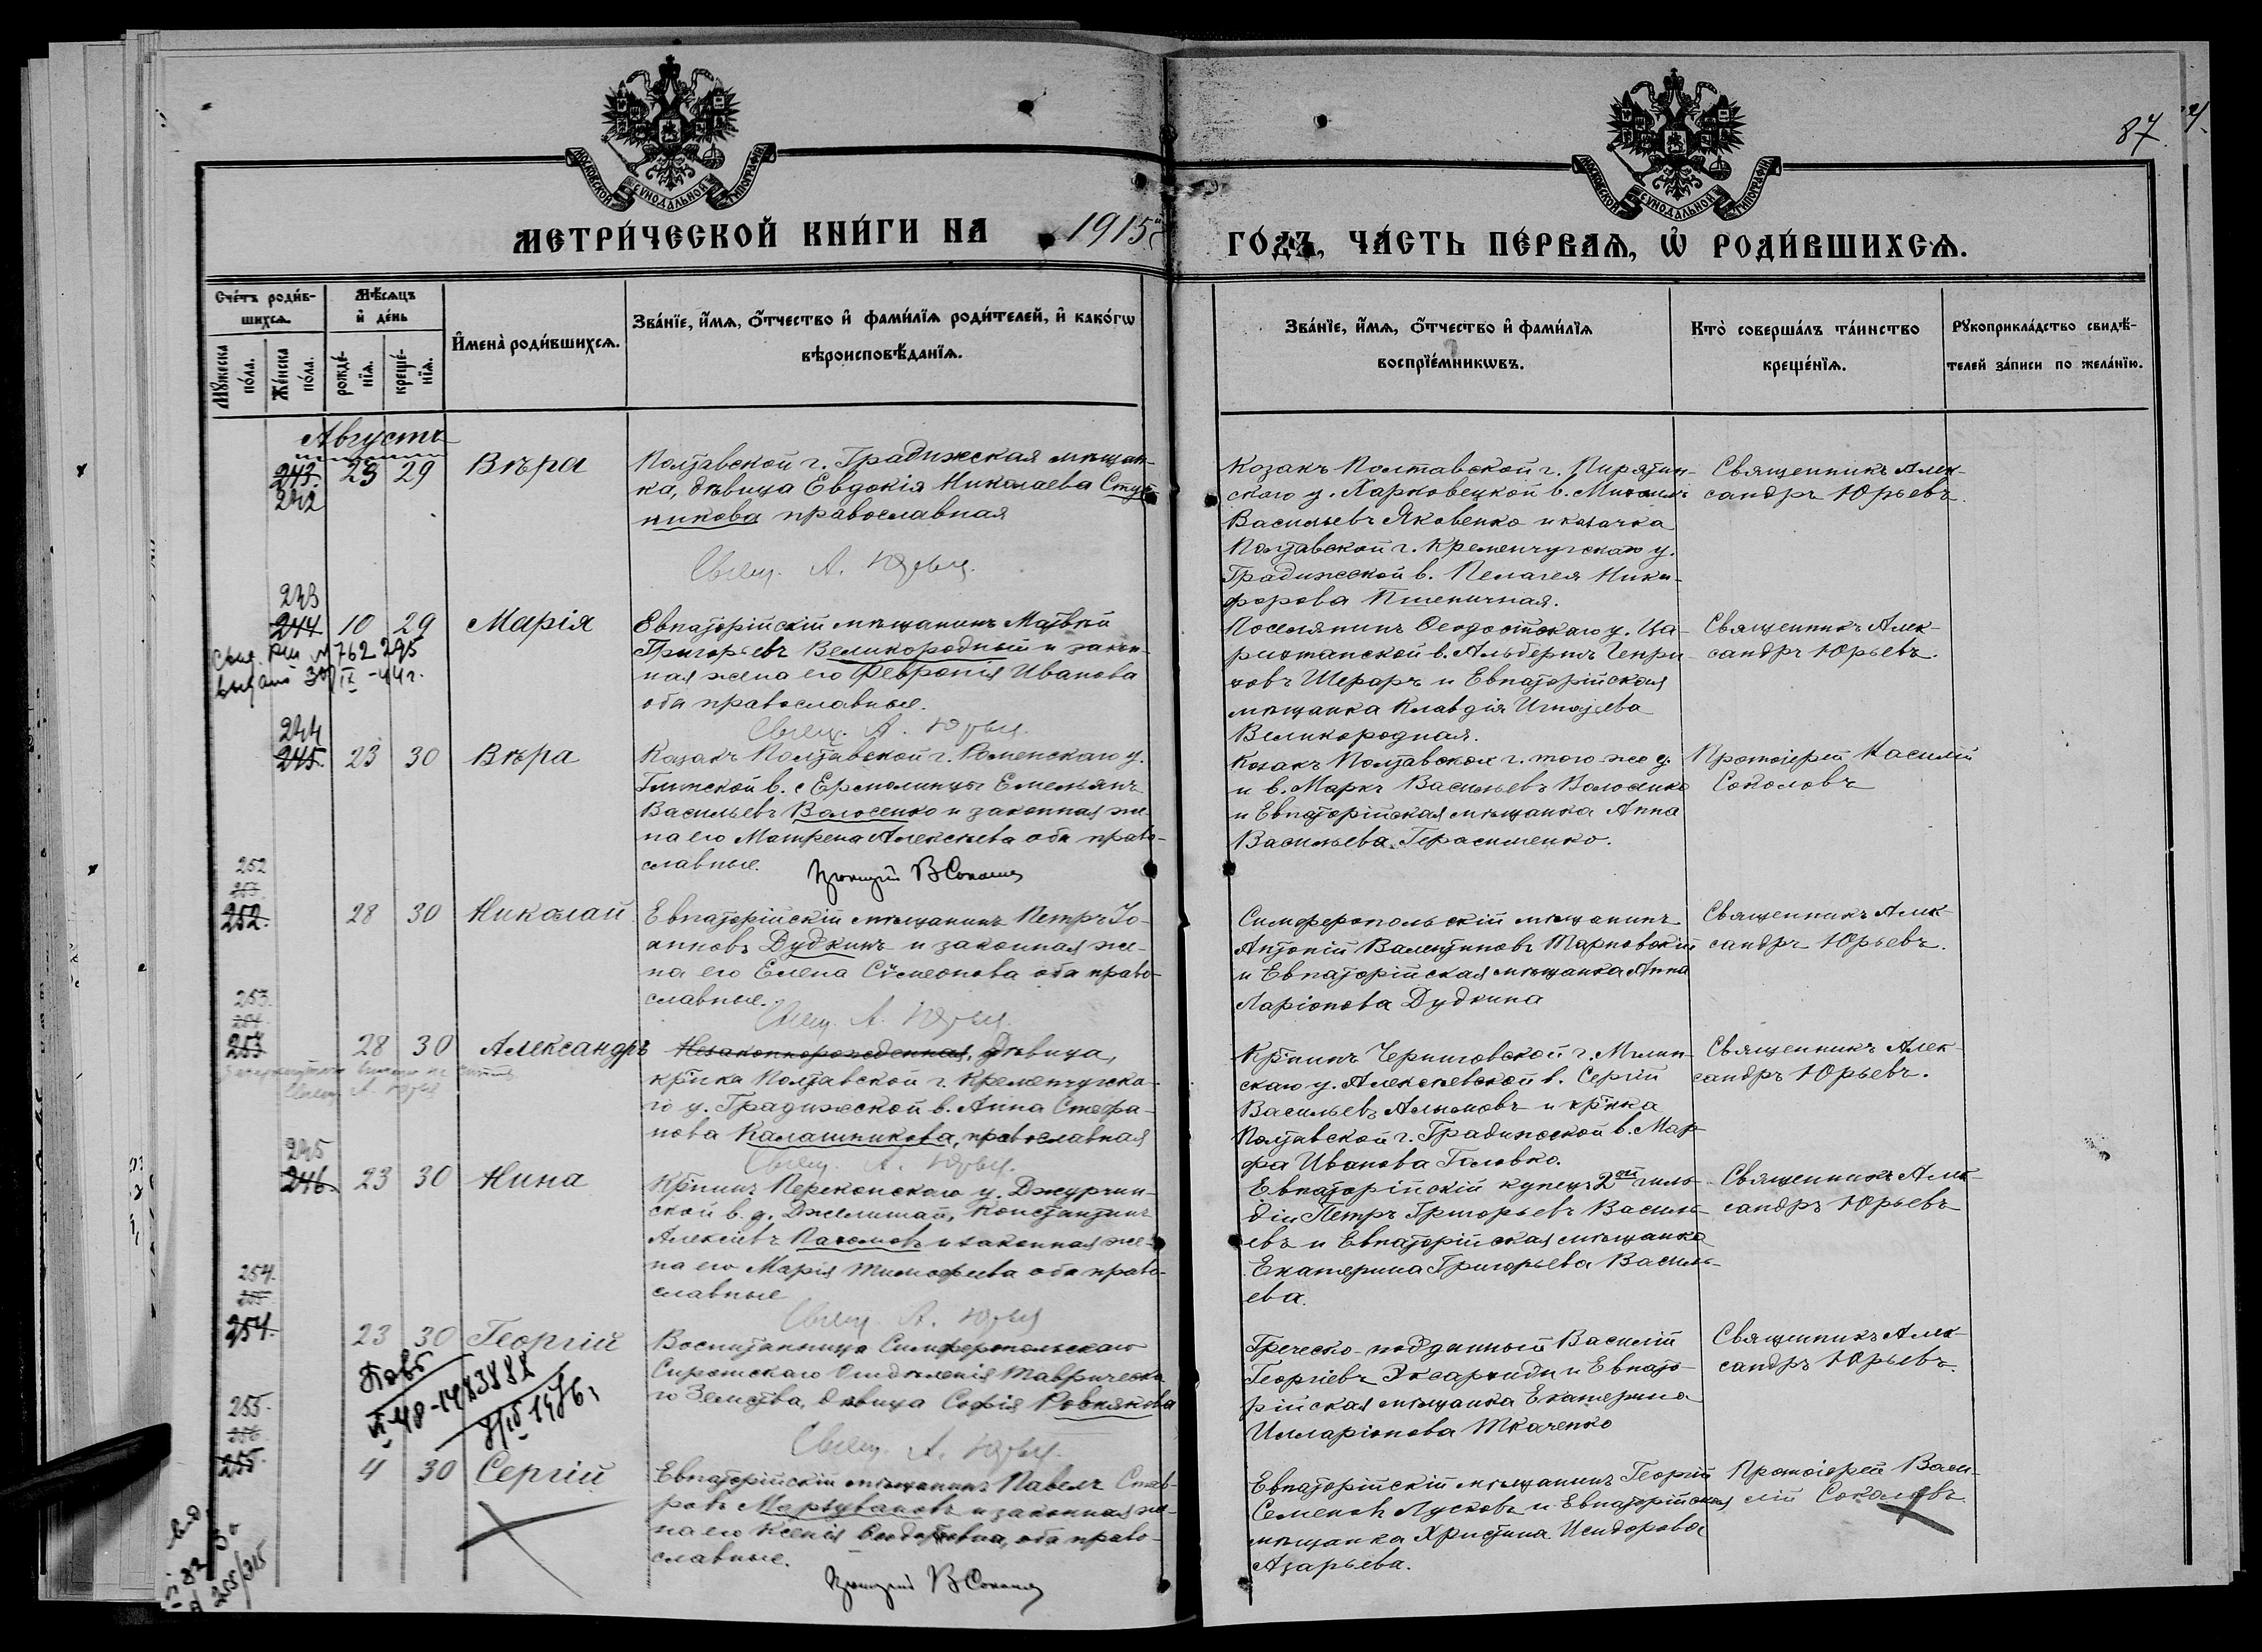 87.
МОСКОВСКОЙ СУНОДАЛЬНОЙ ТИПОГРАФІИ
МОСКОВСКОЙ СУНОДАЛЬНОЙ ТИПОГРАФІИ
МЕТРИ́ЧЕСКОЙ КНИ́ГИ НА 1915й
ГО́ДЪ, ЧА́СТЬ ПЕ́РВАѦ, Ѡ҆ РОДИ́ВШИХСѦ.
Сче́тъ роди́в-
шихсѧ.
Мѣ́сѧцъ
и҆ де́нь
Мꙋ́жеска
по́ла.
Же́нска
по́ла.
рожде́-
нїѧ.
креще́-
нїѧ.
И҆мена̀ роди́вшихсѧ.
Зва́нїе, и҆́мѧ, ѻ҆́тчество и҆ фами́лїѧ роди́телей, и҆ како́гѡ
вѣроисповѣ́данїѧ.
Зва́нїе, и҆́мѧ, ѻ҆́тчество и҆ фами́лїѧ
воспрїе́мникѡвъ.
Кто̀ соверша́лъ та́инство
креще́нїѧ.
Рꙋкоприкла́дство свидѣ́-
телей за́писи по жела́нїю.
Августъ
243. 23 29 Вѣра
242
Полтавской г. Градижская мѣщан-
ка, дѣвица Евдокія Николаева Ступ-
никова православная
Свящ. А. Юрьев.
Козакъ Полтавской г. Пирятин-
скаго у. Харковецкой в. Михаилъ
Васильевъ Яковенко и козачка
Полтавской г. Кременчугскаго у.
Градижской в. Пелагея Ники-
форова Пшеничная.
Священникъ Алек-
сандръ Юрьевъ.
243
244 10 29 Марія
762295
выдано 30/IX-44г.
Евпаторійскій мѣщанинъ Матвѣй
Григорьевъ Великородный и закон-
ная жена его Февронія Иванова
оба православные.
Свящ. А. Юрьев.
Поселянинъ Ѳеодосійскаго у. Ца-
рихтанской в. Альбертъ Генри-
ховъ Шерарь и Евпаторійская
мѣщанка Клавдія Игнатьева
Великородная.
Священникъ Алек-
сандръ Юрьевъ.
244
245. 23 30 Вѣра
Казакъ Полтавской г. Роменскаго у.
Глинской в. с Ермолинцы Емельянъ
Васильевъ Волосенко и законная же-
на его Матрена Алексѣева оба право-
славные.
Протоіерей В Соколов
Козакъ Полтавской г. того же у.
и в. Маркъ Васильевъ Волосенко
и Евпаторійская мѣщанка Анна
Васильева Герасименко.
Протоіерей Василій
Соколовъ
252
253
252. 28 30 Николай
Евпаторійскій мѣщанинъ Петръ Іо-
анновъ Дудкинъ и законная же-
на его Елена Сѵмеонова оба право-
славные.
Свящ. А. Юрьев.
Симферопольскій мѣщанинъ
Антоній Валентиновъ Тарновскій
и Евпаторійская мѣщанка Анна
Ларіонова Дудкина
Священникъ Алек-
сандръ Юрьевъ.
253.
254.
253 28 30 Александръ
Зачеркнутое
Свящ. А. Юрьев
Незаконнорожденная, дѣвица,
кр-нка Полтавской г. Кременчугска-
го у. Градижской в. Анна Стефа-
нова Калашникова, православная
Свящ. А. Юрьев.
Кр-нинъ Черниговской г. Мглин-
скаго у. Алексѣевской в. Сергій
Васильевъ и кр-нка
Полтавской г. Градижской в. Мар-
фа Иванова Головко.
Священникъ Алек-
сандръ Юрьевъ.
245
246. 23 30 Нина
Кр-нинъ Перекопскаго у. Джурчин-
ской в. д. Константинъ
Алексѣевъ Пахомовъ и законная же-
на его Марія Тимофеева оба право-
славные
Свящ. А. Юрьев
Евпаторійскій купецъ 2ой гиль-
діи Петръ Григорьевъ Василь-
евъ и Евпаторійская мѣщанка
Екатерина Григорьева Василь-
ева.
Священникъ Алек-
сандръ Юрьевъ
254.
255.
254. 23 30 Георгій
Воспитанница Симферопольскаго
Сиротскаго Отдѣленія Таврическа-
го Земства, дѣвица Софія Ровнякова
Свящ. А. Юрьев.
Греческо-подданный Василій
Георгіевъ и Евпато-
рійская мѣщанка Екатерина
Илларіонова Ткаченко
Священникъ Алек-
сандръ Юрьевъ.
255.
256.
255. 4 30 Сергій
Евпаторійскій мѣщанинъ Павелъ Став-
ровъ и законная же-
на его Ксенія оба право-
славные.
Протоіерей В Соколов
Евпаторійскій мѣщанинъ Георгій
Семеновъ Лусковъ и Евпаторійская
мѣщанка Христина Исидорова
Азарьева.
Протоіерей Васи-
лій Соколовъ
255/315